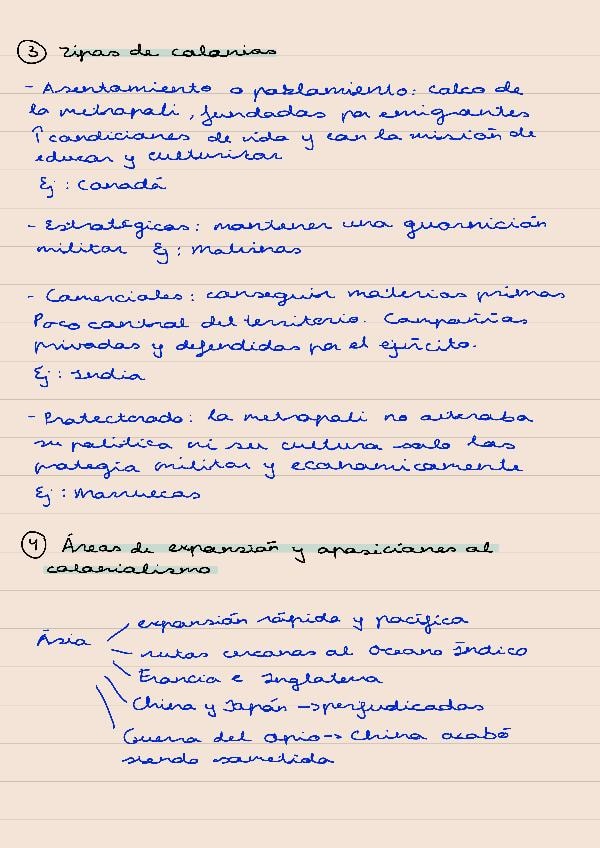 ③ Tipos de colonias
- Asentamiento o poblamiento: calco de
la metropoli, fundadas por emigrantes
↑ condiciones de vida y con la misión de
educar y culturizar
Ej: Canadá
- Estratégicas: mantener una guarnición
militar Ej: Malvinas
- Comerciales: conseguir materias primas
Poco control del territorio. Compañías
privadas y defendidas por el ejército.
Ej: India
- Protectorado: la metropoli no alteraba
su política ni su cultura solo las
protegía militar y economicamente
Ej: Marruecos
④ Áreas de expansión y oposiciones al
colonialismo
Ásia
expansión rápida y pacífica
rutas cercanas al Oceano Índico
Francia e Inglaterra
China y Japón → perjudicadas
Guerra del opio → China acabó
siendo sometida